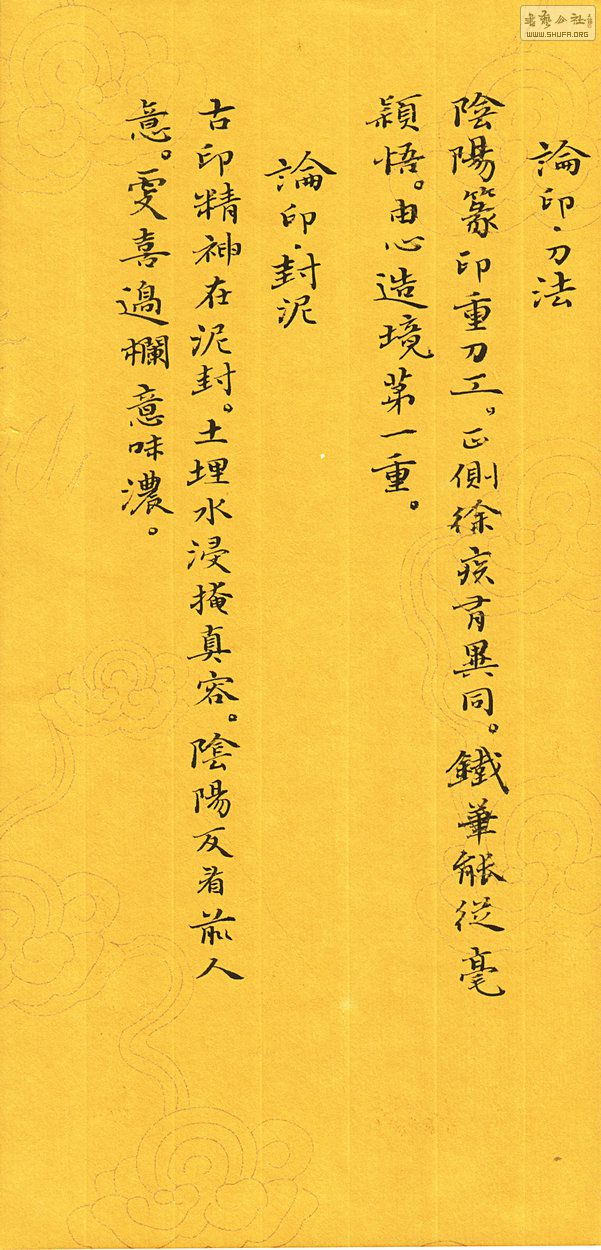 論印·刀法
陰陽篆印重刀工。正側徐疾有異同。鐵筆能從毫
穎悟。由心造境第一重。
論印·封泥
古印精神在泥封。土埋水浸掩真容。陰陽反看前人
意。更喜邊欄意味濃。
WWW.SHUFA.ORG